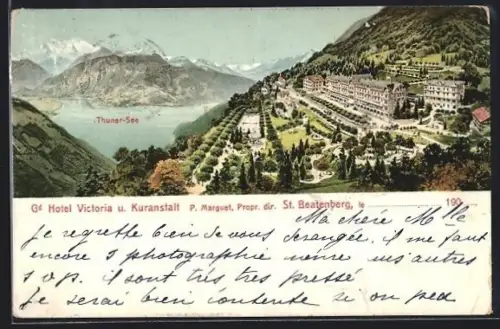 Thuner-See
Gd Hotel Victoria u. Kuranstalt P. Marguet, Propr. dir. St. Beatenberg, le 190
Ma chère Mlle
je regrette bien de vous dérangée. il me faut
encore 3 photographie même mes autres
s v p. il sont très très pressé
Je serai bien contente si on ped